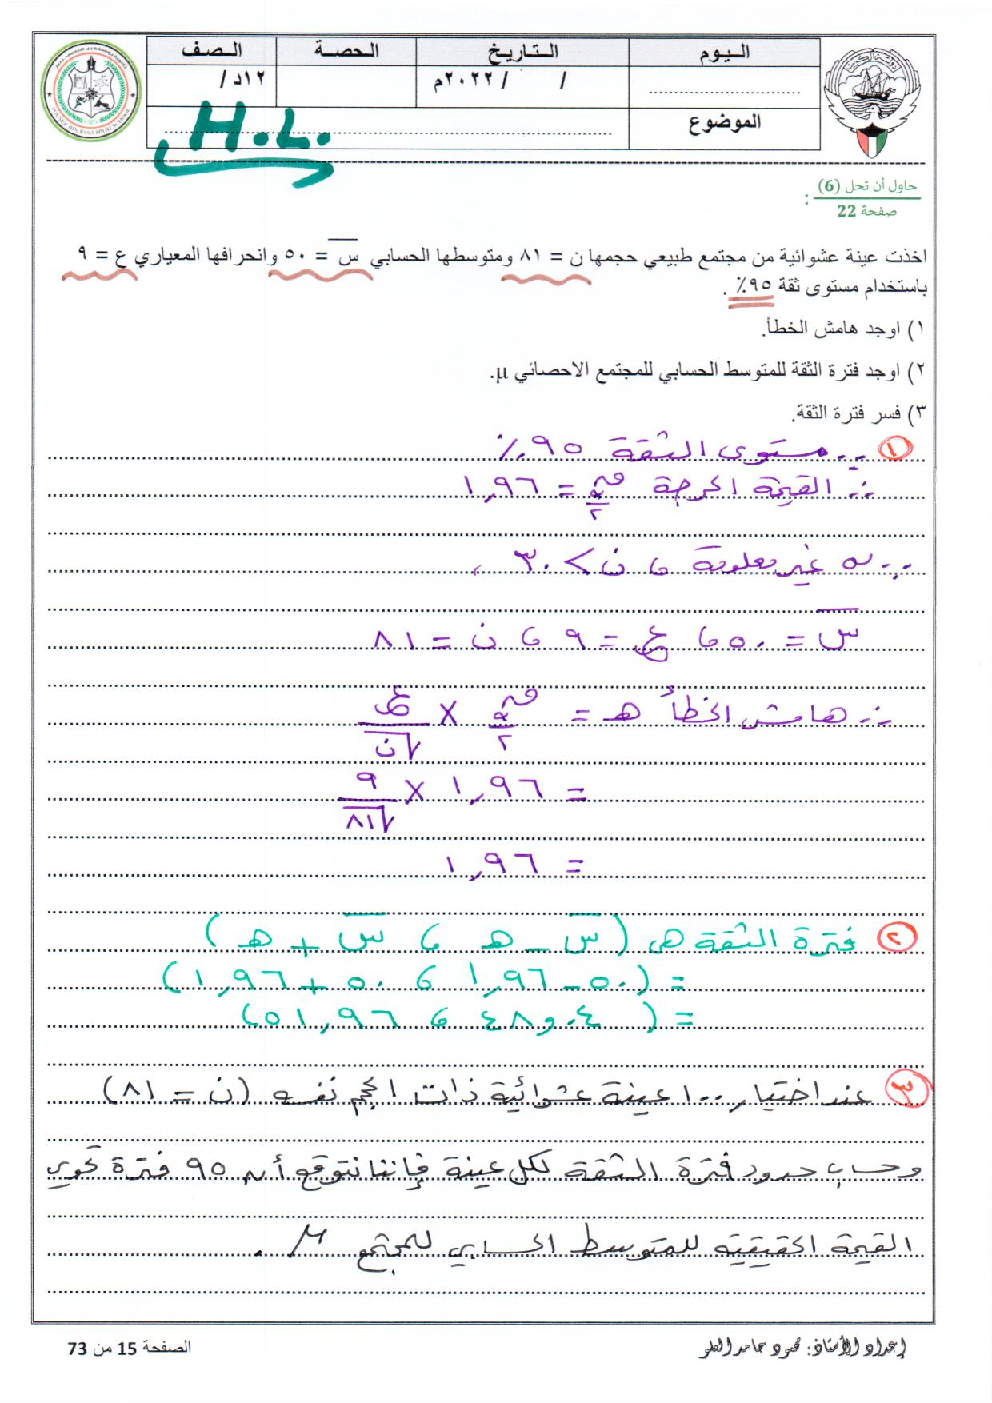 اليوم التاريخ الحصة الصف
/ / ٢٠٢٢م ١٢د/
الموضوع H.L.
حاول أن تحل (6)
صفحة 22 :
اخذت عينة عشوائية من مجتمع طبيعي حجمها ن = ٨١ ومتوسطها الحسابي س̄ = ٥٠ وانحرافها المعياري ع = ٩
باستخدام مستوى ثقة ٩٥٪ .
١) اوجد هامش الخطأ.
٢) اوجد فترة الثقة للمتوسط الحسابي للمجتمع الاحصائي µ.
٣) فسر فترة الثقة.
① ∵ مستوى الثقة ٩٥٪
∴ القيمة الحرجة ق م/٢ = ١,٩٦
∵ σ غير معلومة ، ن > ٣٠ ،
س̄ = ٥٠ ، ع = ٩ ، ن = ٨١
∴ هامش الخطأ هـ = ق م/٢ × ع/√ن
= ١,٩٦ × ٩/√٨١
= ١,٩٦
② فترة الثقة هي (س̄ - هـ ، س̄ + هـ)
= (٥٠ - ١,٩٦ ، ٥٠ + ١,٩٦)
= (٤٨,٠٤ ، ٥١,٩٦)
③ عند اختيار ١٠٠ عينة عشوائية ذات الحجم نفسه (ن = ٨١)
وحساب حدود فترة الثقة لكل عينة فإننا نتوقع أن ٩٥ فترة تحوي
القيمة الحقيقية للمتوسط الحسابي للمجتمع µ .
إعداد الأستاذ: محمود حامد
الصفحة 15 من 73